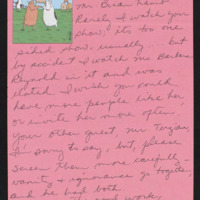 Mr. Brian Lamb:
Rarely I watch your
show, it's too one
sided show, usually... but
by accident I watch Ms. Barbara
Reynolds in it and was
elated. I wish you could
have more people like her
or invite her more often.
Your other guest, Mr.
I'm sorry to say, but, please
screen them more carefully -
vanity & ignorance go together,
and he had both.
good work,